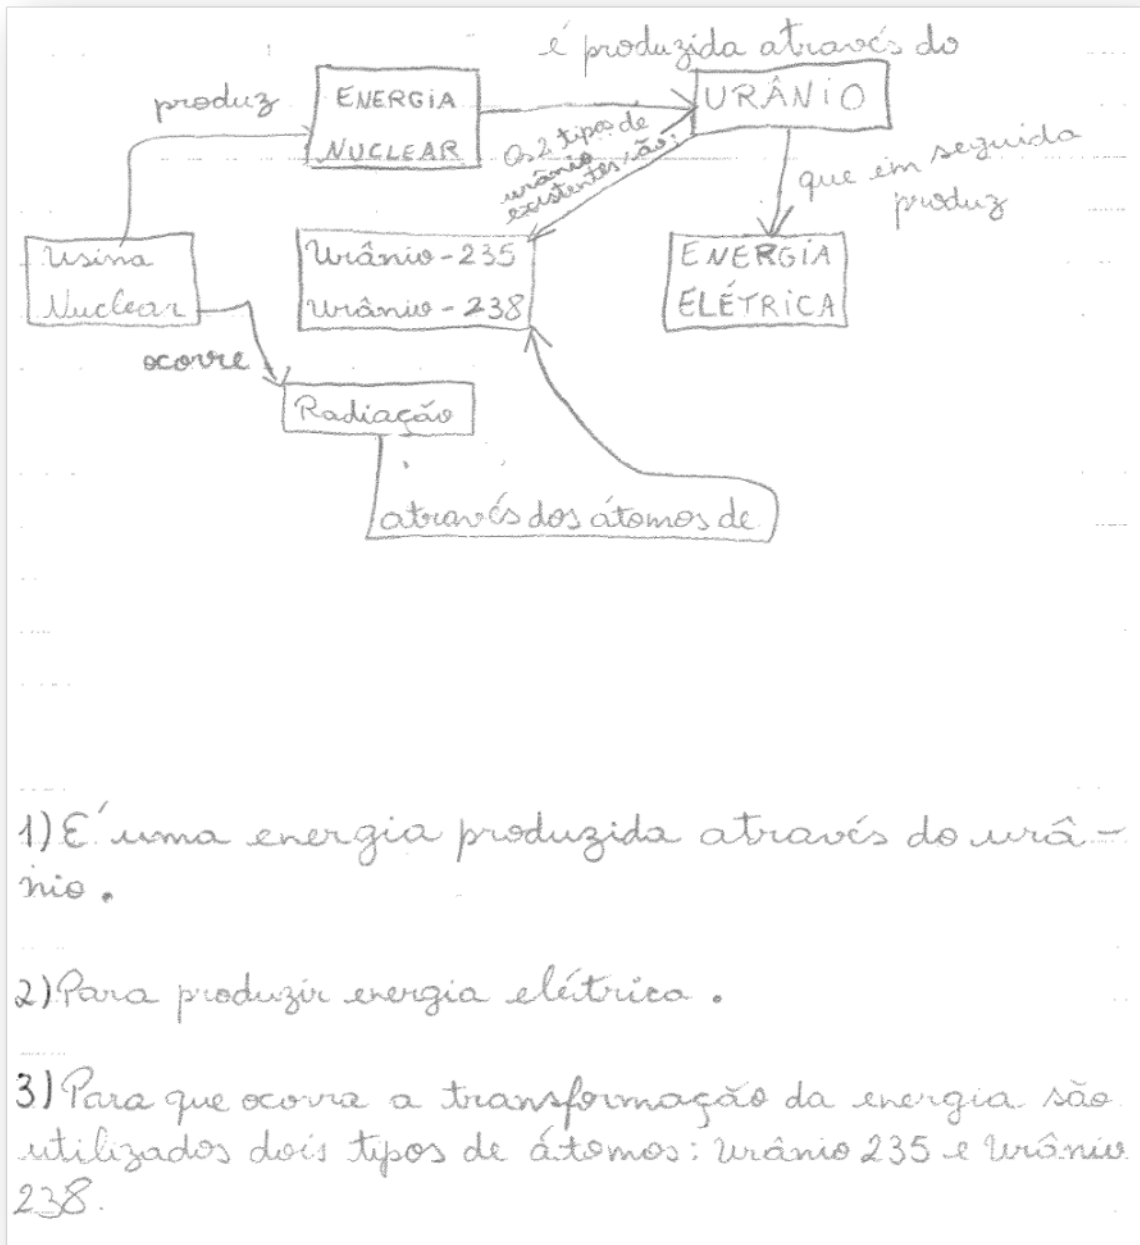 é produzida através do
produz
ENERGIA
NUCLEAR
URÂNIO
Os 2 tipos de
urânio
existentes, são:
que em seguida
produz
Usina
Nuclear
Urânio - 235
Urânio - 238
ENERGIA
ELÉTRICA
ocorre
Radiação
através dos átomos de
1) É uma energia produzida através do urâ-
nio.
2) Para produzir energia elétrica.
3) Para que ocorra a transformação da energia são
utilizados dois tipos de átomos: Urânio 235 e Urânio
238.